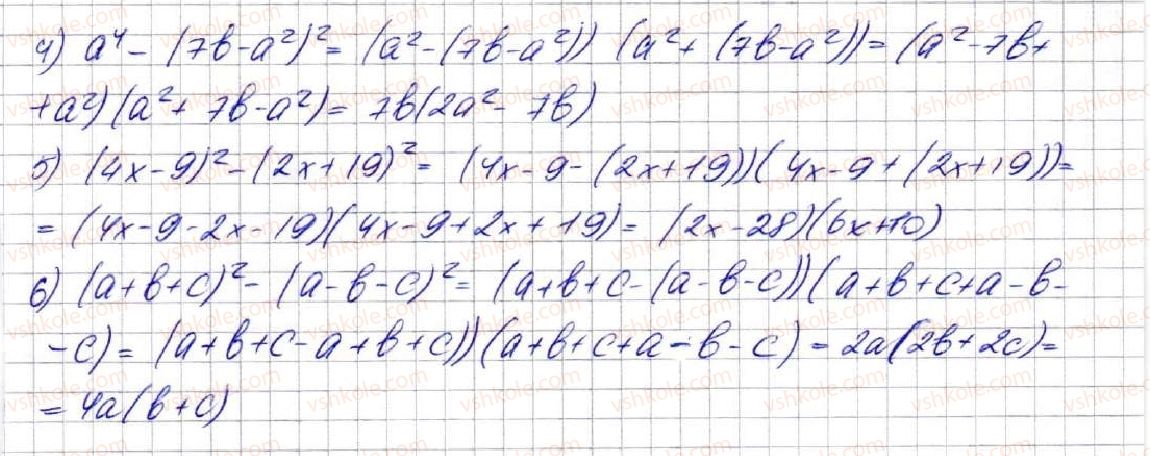 4) a⁴ - (7b-a²)² = (a²-(7b-a²)) (a²+(7b-a²)) = (a²-7b+
+a²)(a²+7b-a²) = 7b(2a²-7b)
5) (4x-9)²-(2x+19)² = (4x-9-(2x+19))(4x-9+(2x+19))=
= (4x-9-2x-19)(4x-9+2x+19) = (2x-28)(6x+10)
6) (a+b+c)²-(a-b-c)² = (a+b+c-(a-b-c))(a+b+c+a-b-
-c) = (a+b+c-a+b+c))(a+b+c+a-b-c) = 2a(2b+2c)=
= 4a(b+c)